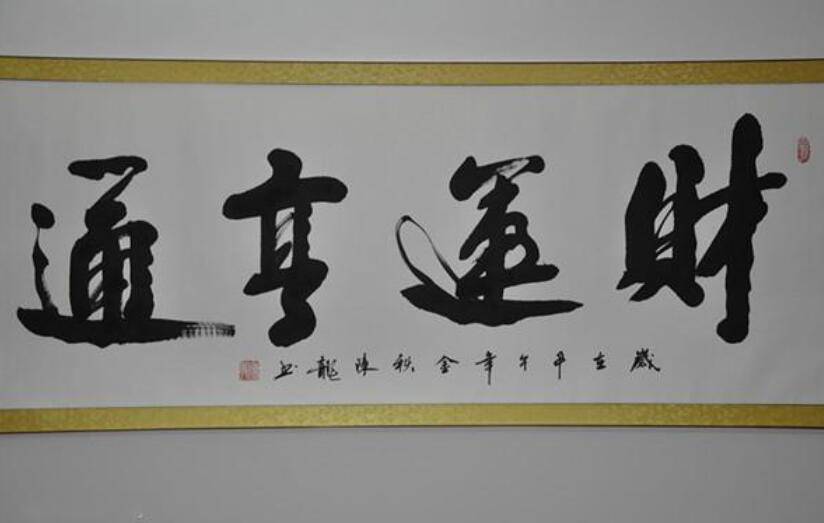 財運亨通
歲在甲午年金秋陳龍書